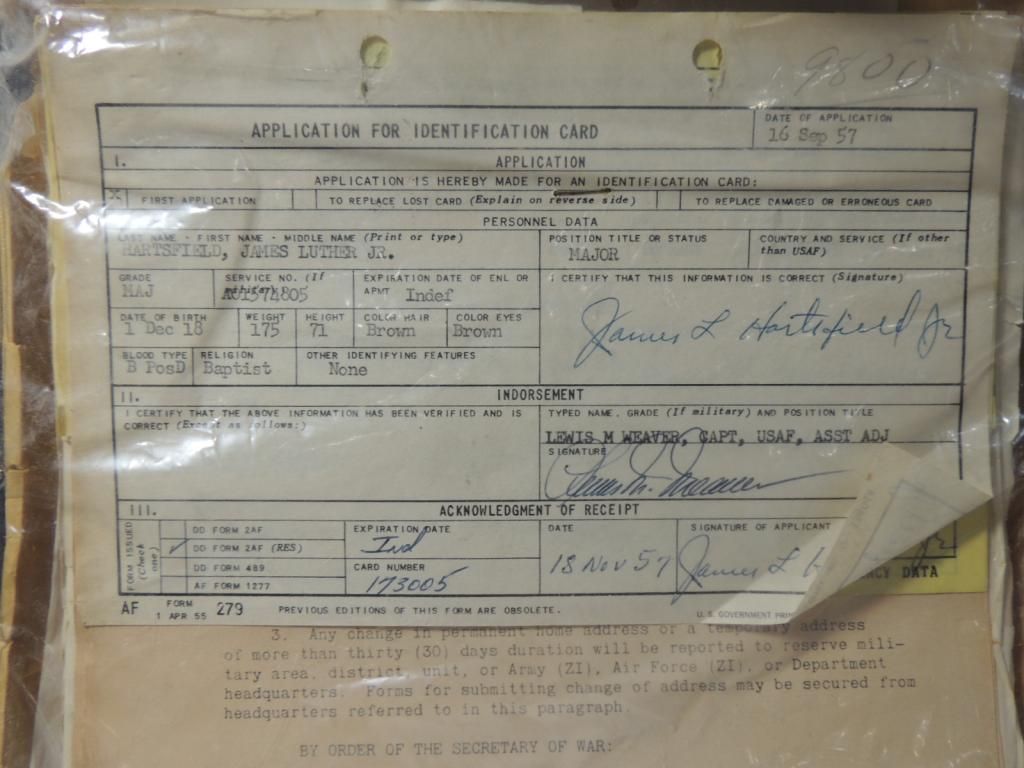 9800
APPLICATION FOR IDENTIFICATION CARD
DATE OF APPLICATION
16 Sep 57
I. APPLICATION
APPLICATION IS HEREBY MADE FOR AN IDENTIFICATION CARD:
X FIRST APPLICATION TO REPLACE LOST CARD (Explain on reverse side) TO REPLACE DAMAGED OR ERRONEOUS CARD
PERSONNEL DATA
LAST NAME - FIRST NAME - MIDDLE NAME (Print or type) POSITION TITLE OR STATUS COUNTRY AND SERVICE (If other than USAF)
HARTSFIELD, JAMES LUTHER JR. MAJOR
GRADE SERVICE NO. (If military) EXPIRATION DATE OF ENL OR APMT I CERTIFY THAT THIS INFORMATION IS CORRECT (Signature)
MAJ AO1574805 Indef
James L Hartsfield Jr
DATE OF BIRTH WEIGHT HEIGHT COLOR HAIR COLOR EYES
1 Dec 18 175 71 Brown Brown
BLOOD TYPE RELIGION OTHER IDENTIFYING FEATURES
B PosD Baptist None
II. INDORSEMENT
I CERTIFY THAT THE ABOVE INFORMATION HAS BEEN VERIFIED AND IS
CORRECT (Except as follows:)
TYPED NAME, GRADE (If military) AND POSITION TITLE
LEWIS M WEAVER, CAPT, USAF, ASST ADJ
SIGNATURE
Lewis M. Weaver
III. ACKNOWLEDGMENT OF RECEIPT
FORM ISSUED (Check one)
DD FORM 2AF
DD FORM 2AF (RES)
DD FORM 489
AF FORM 1277
EXPIRATION DATE
Ind
CARD NUMBER
173005
DATE
18 Nov 57
SIGNATURE OF APPLICANT
James L H
Jr
NCY DATA
AF FORM 1 APR 55 279 PREVIOUS EDITIONS OF THIS FORM ARE OBSOLETE. U. S. GOVERNMENT PRIN
3. Any change in permanent home address or a temporary address
of more than thirty (30) days duration will be reported to reserve mili-
tary area, district, unit, or Army (ZI), Air Force (ZI), or Department
headquarters. Forms for submitting change of address may be secured from
headquarters referred to in this paragraph.
BY ORDER OF THE SECRETARY OF WAR: